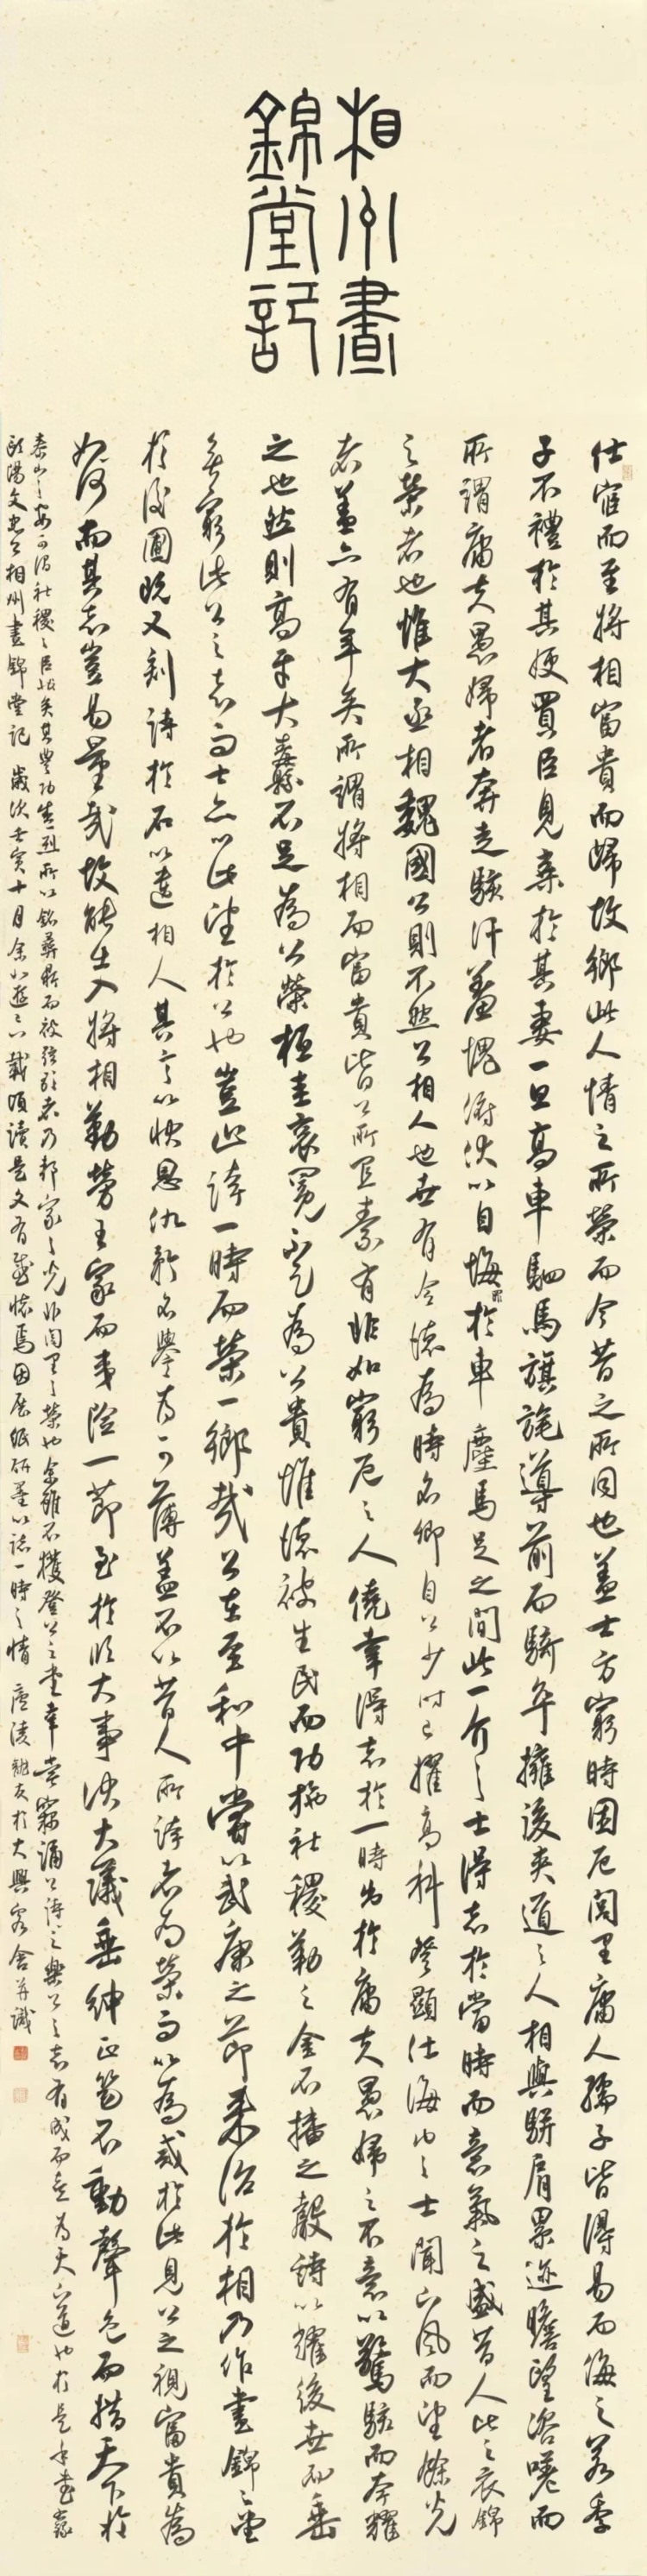 相州晝
錦堂記
仕宦而至將相富貴而歸故鄉此人情之所榮而今昔之所同也蓋士方窮時困厄閭里庸人孺子皆得易而侮之若季
子不禮於其嫂買臣見棄於其妻一旦高車駟馬旗旄導前而騎卒擁後夾道之人相與駢肩累迹瞻望咨嗟而
所謂庸夫愚婦者奔走駭汗羞愧俯伏以自悔罪於車塵馬足之間此一介之士得志於當時而意氣之盛昔人比之衣錦
之榮者也惟大丞相魏國公則不然公相人也世有令德為時名卿自公少時已擢高科登顯仕海內之士聞下風而望餘光
者蓋亦有年矣所謂將相而富貴皆公所宜素有非如窮厄之人僥幸得志於一時出於庸夫愚婦之不意以驚駭而夸耀
之也然則高牙大纛不足為公榮桓圭袞冕不足為公貴惟德被生民而功施社稷勒之金石播之聲詩以耀後世而垂
無窮此公之志而士亦以此望於公也豈止誇一時而榮一鄉哉公在至和中嘗以武康之節來治於相乃作晝錦之堂
於後圃既又刻詩於石以遺相人其言以快恩仇矜名譽為可薄蓋不以昔人所誇者為榮而以為戒於此見公之視富貴為
如何而其志豈易量哉故能出入將相勤勞王家而夷險一節至於臨大事決大議垂紳正笏不動聲色而措天下於
泰山之安可謂社稷之臣矣其豐功盛烈所以銘彝鼎而被弦歌者乃邦家之光非閭里之榮也余雖不獲登公之堂幸嘗竊誦公詩樂公之志有成而喜為天下道也於是乎書
歐陽文忠公相州晝錦堂記 歲次壬寅十月余小遊 載頃讀是文有感懷焉因展紙研墨以誌一時之情 廬陵 於大興客舍并識